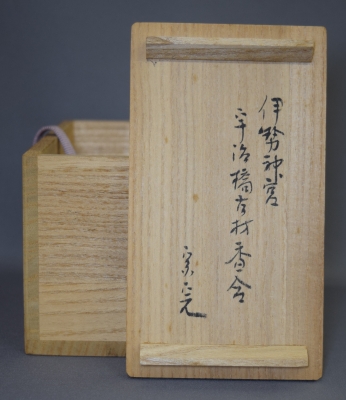 伊勢神宮
宇治橋古材香合
宗完